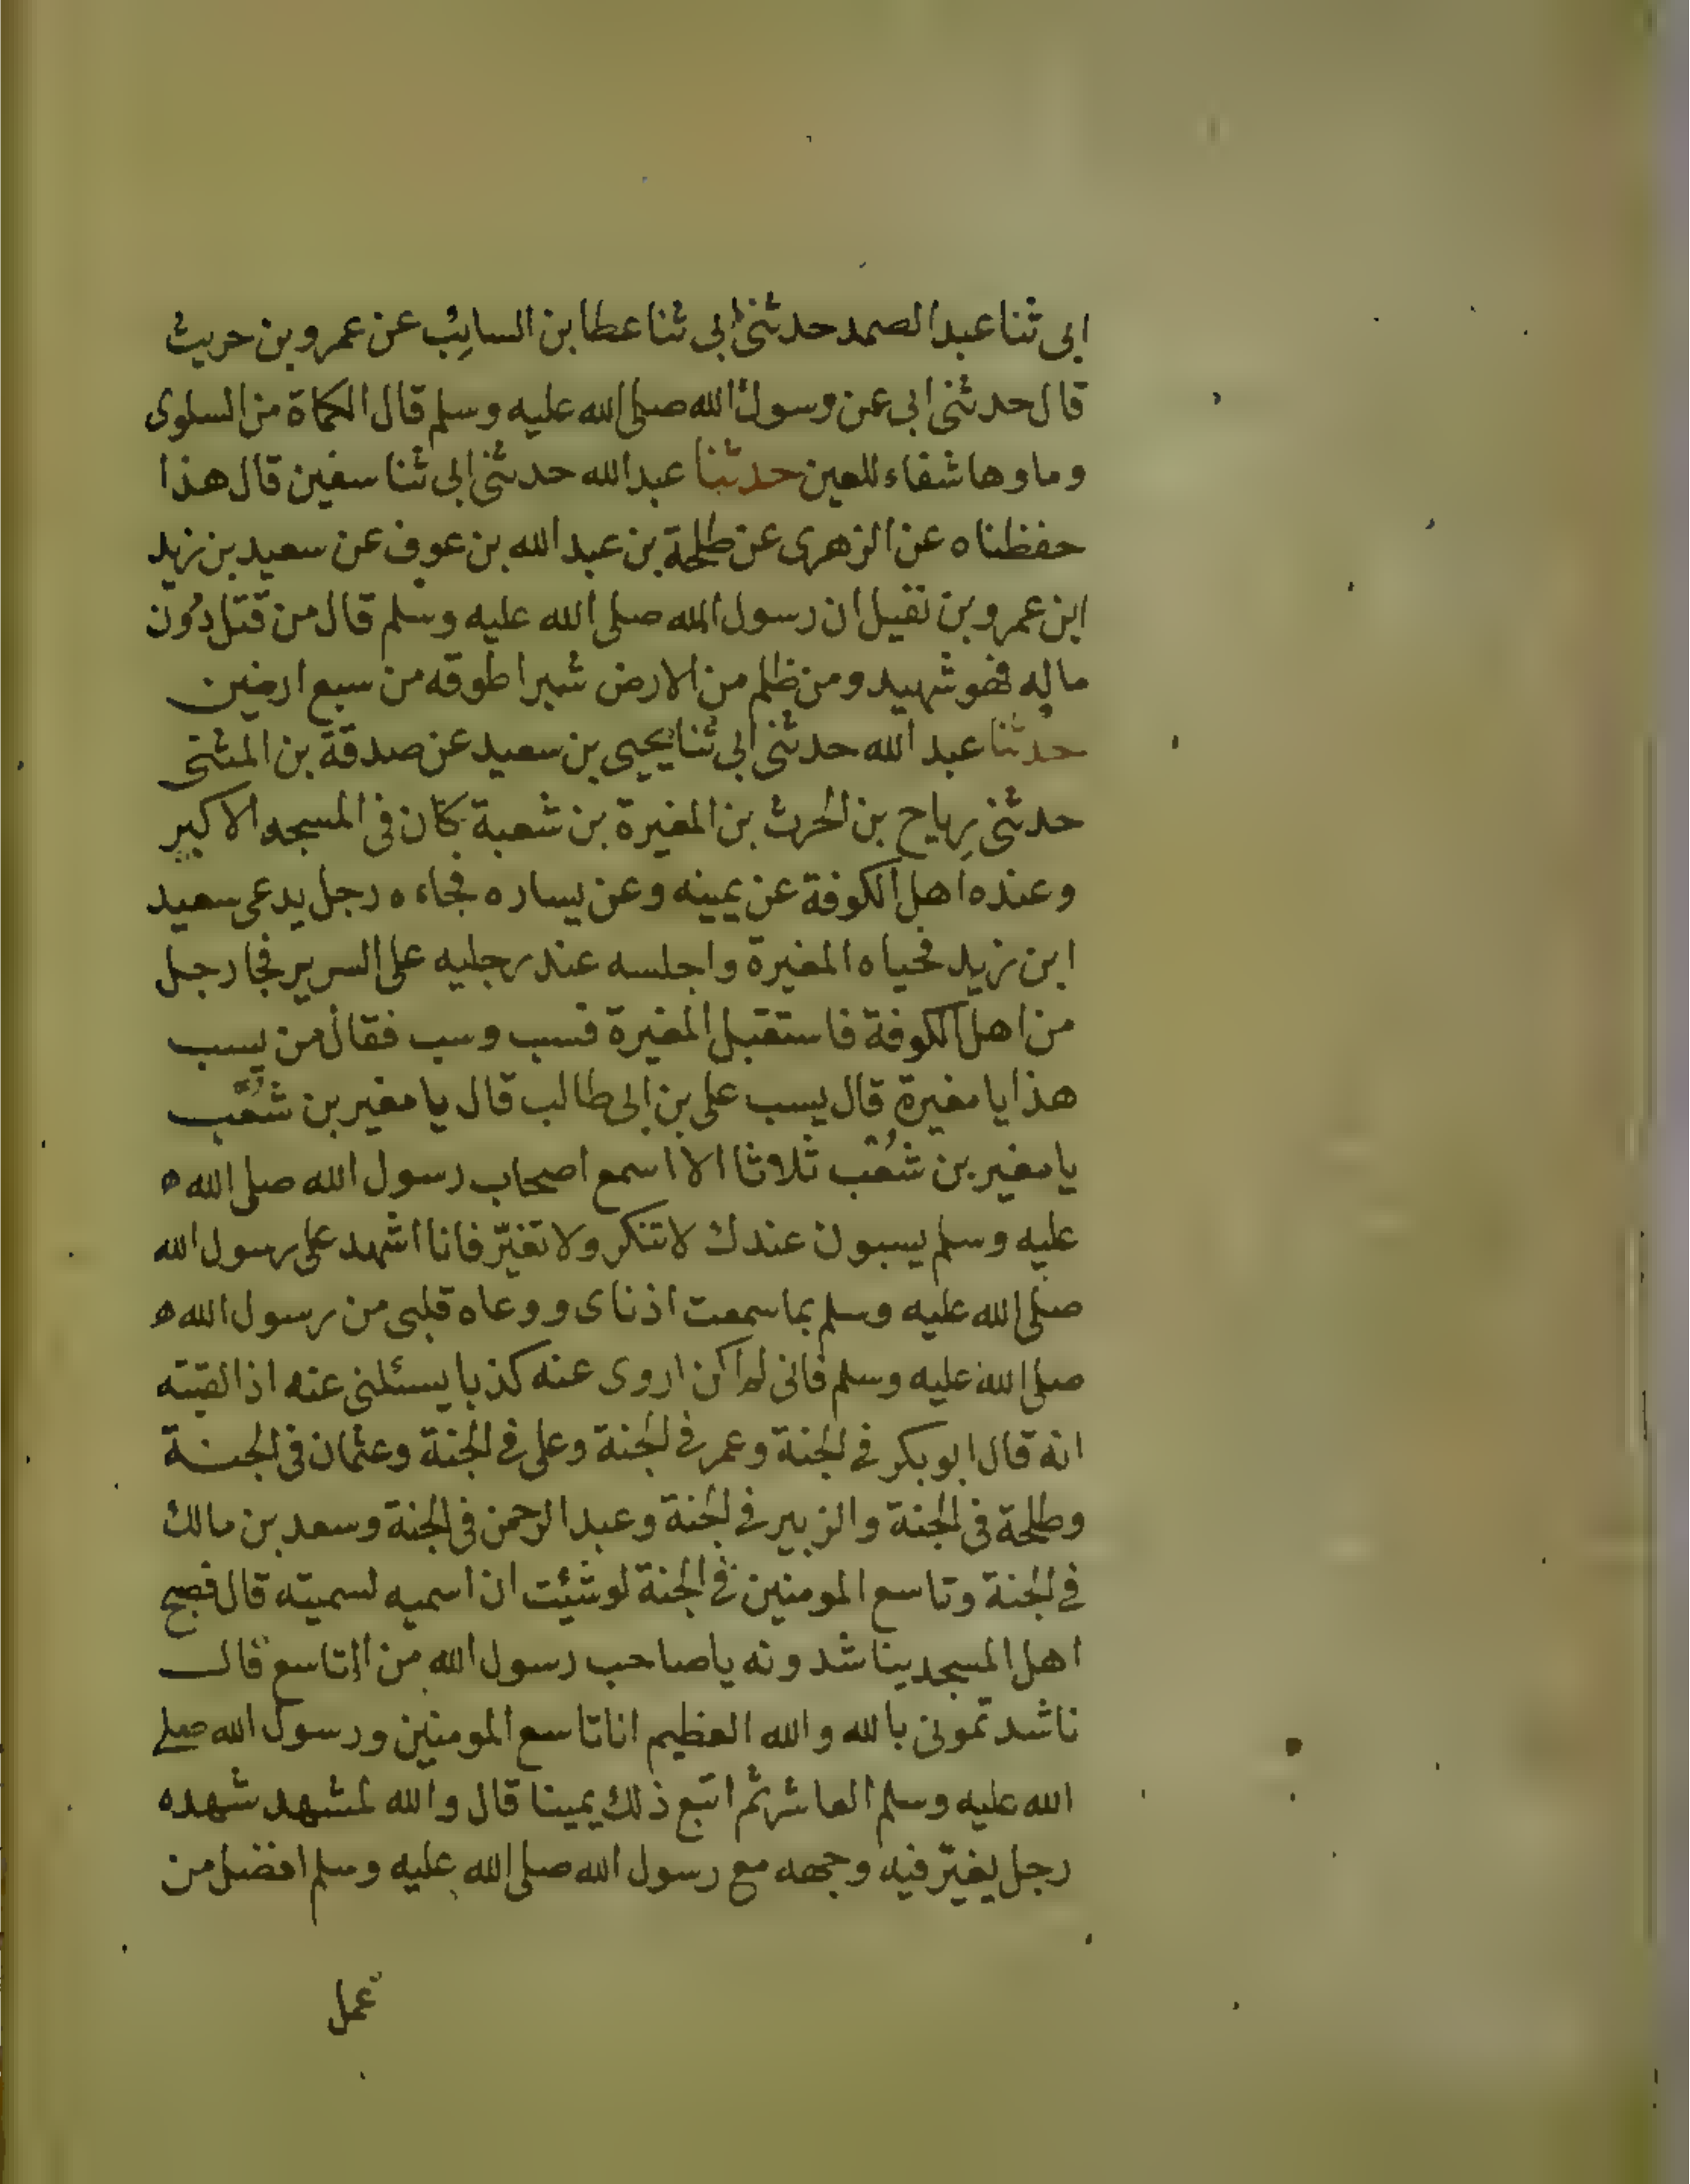 ابى ثنا عبد الصمد حدثنى ابى ثنا عطا بن السايب عن عمرو بن حريث
قال حدثنى ابى عن رسول الله صلى الله عليه وسلم قال الكماة من السلوى
وماوها شفاء للعين حدثنا عبد الله حدثنى ابى ثنا سفين قال هذا
حفظناه عن الزهرى عن طلحة بن عبد الله بن عوف عن سعيد بن زيد
ابن عمرو بن نفيل ان رسول الله صلى الله عليه وسلم قال من قتل دُون
ماله فهو شهيد ومن ظلم من الارض شبرا طوقه من سبع ارضين
حدثنا عبد الله حدثنى ابى ثنا يحيى بن سعيد عن صدقة بن المثنى
حدثنى رياح بن الحرث بن المغيرة بن شعبة كان فى المسجد الاكبر
وعنده اهل الكوفة عن يمينه وعن يساره فجاءه رجل يدعى سعيد
ابن زيد فحياه المغيرة واجلسه عند رجليه على السرير فجا رجل
من اهل الكوفة فاستقبل المغيرة فسب وسب فقال من يسب
هذا يا مغيرة قال يسب على بن ابى طالب قال يا مغير بن شُعّب
يا مغير بن شُعّب ثلاثا الا اسمع اصحاب رسول الله صلى الله ه
عليه وسلم يسبون عندك لا تنكر ولا تغيّر فانا اشهد على رسول الله
صلى الله عليه وسلم بما سمعت اذناى ووعاه قلبى من رسول الله ه
صلى الله عليه وسلم فانى لم اكن اروى عنه كذبا يسئلنى عنه اذا لقيته
انه قال ابو بكر فى الجنة وعمر فى الجنة وعلى فى الجنة وعثمان فى الجنة
وطلحة فى الجنة والزبير فى الجنة وعبد الرحمن فى الجنة وسعد بن مالك
فى الجنة وتاسع المومنين فى الجنة لو شئت ان اسميه لسميته قال فصج
اهل المسجد يناشدونه يا صاحب رسول الله من التاسع قال
ناشدتمونى بالله والله العظيم انا تاسع المومنين ورسول الله صلى
الله عليه وسلم العاشر ثم اتبع ذلك يمينا قال والله لمشهد شهده
رجل يغبّر فيه وجهه مع رسول الله صلى الله عليه وسلم افضل من
عمل